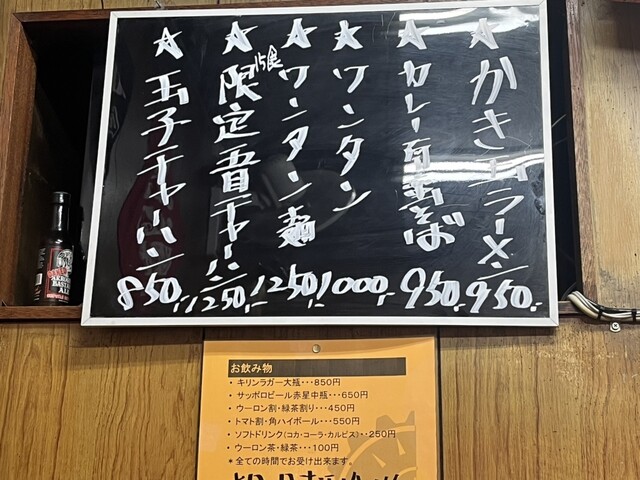 ☆かき玉ラーメン 950.-
☆カレー有まそば 950.-
☆ワンタン 1000.-
☆ワンタン麺 1250.-
☆限定15食 チャーハン 1250.-
☆玉子チャーハン 850.-
お飲み物
・キリンラガー大瓶･･･850円
・サッポロビール赤星中瓶･･･650円
・ウーロン割・緑茶割り･･･450円
・トマト割・角ハイボール･･･550円
・ソフトドリンク(コカ・コーラ・カルピス)･･･250円
・ウーロン茶・緑茶･･･100円
＊全ての時間でお受け出来ます。